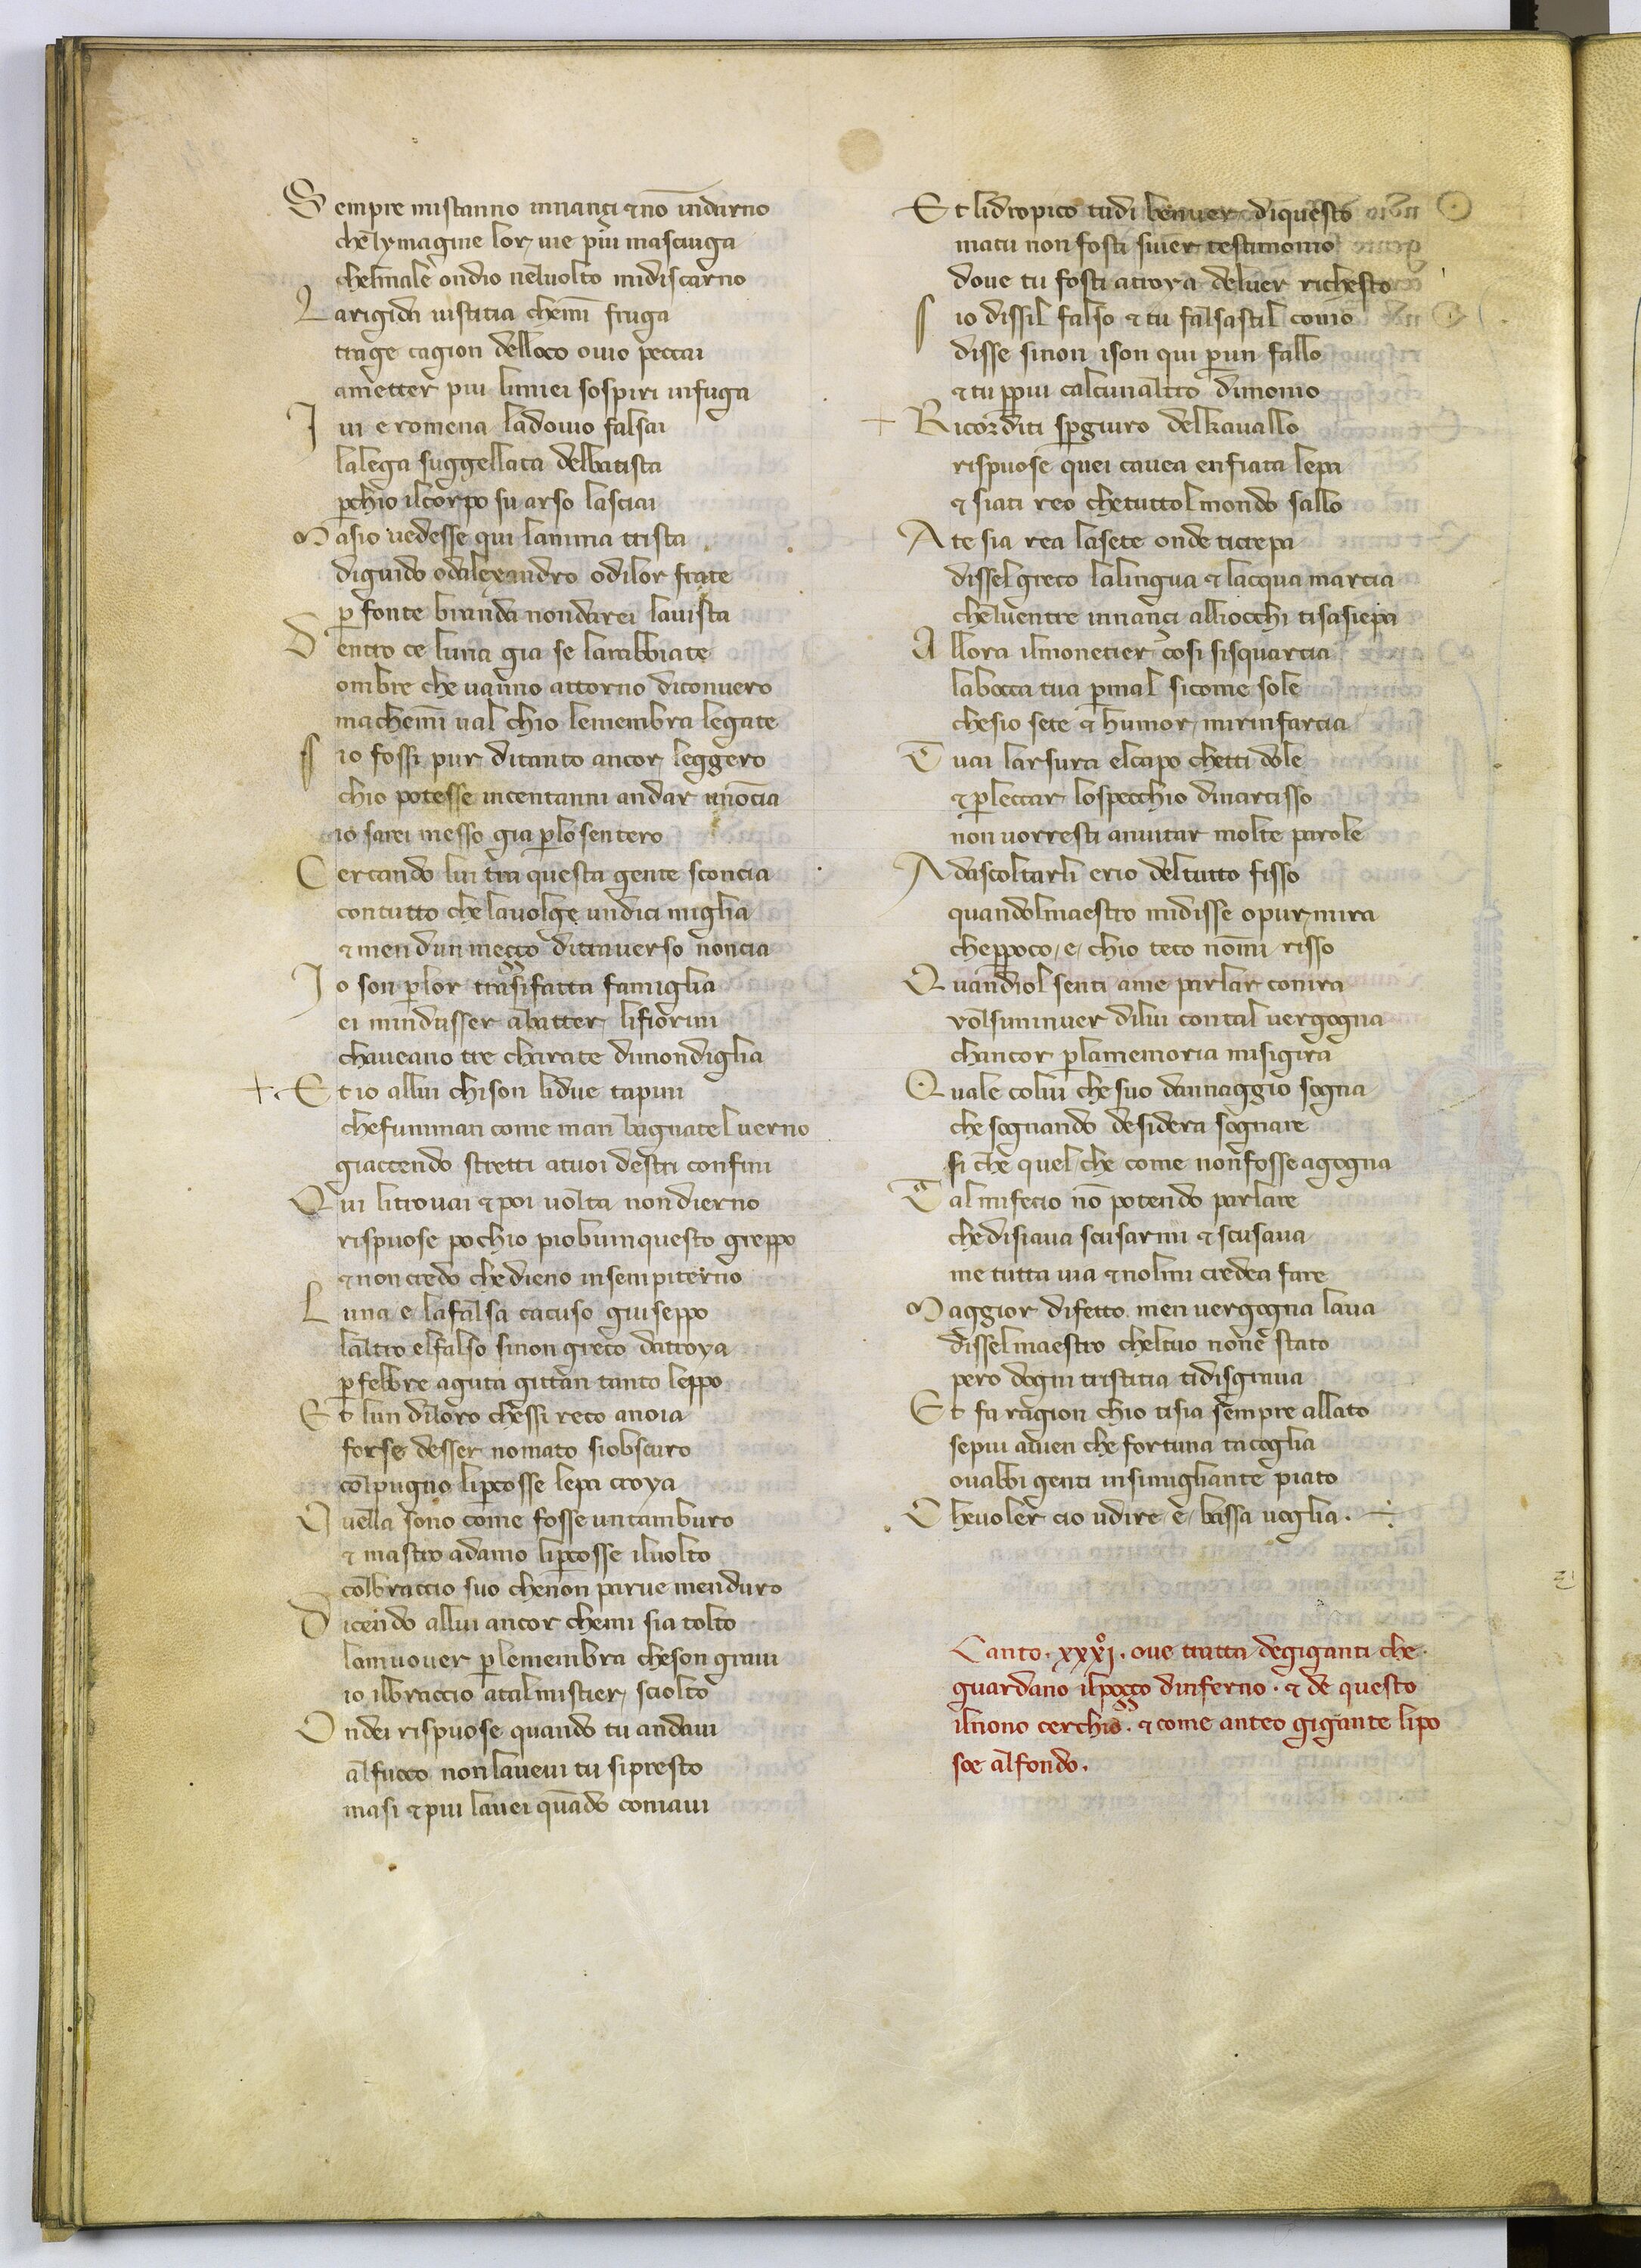 Sempre mistanno innanci ⁊ nō indarno
che lymagine lor uie piu masciuga
chelmale ondio neluolto midiscarno
Larigida iustitia chemī fruga
trage cagion delloco ouio peccai
ametter piu limiei sospiri infuga
Iui e romena ladouio falsai
lalega suggellata delbatista
ꝑchio ilcorpo su arso lasciai
Masio uedesse qui lanima trista
diguido odalexandro odilor frate
ꝑ fonte branda nondarei lauista
Dentro ce luna gia se larabbiate
ombre che uanno attorno diconuero
machemī ual chio lemembra legate
Sio fossi pur ditanto ancor leggero
chio potesse incentanni andar unoncia
io sarei messo gia ꝑlo sentero
Cercando lui tra questa gente sconcia
contutto che lauolge undici miglia
⁊ men dun meçço ditrauerso noncia
Io son ꝑlor trasifatta famiglia
ei mindusser abatter lifiorini
chaueano tre charate dimondiglia
Et io allui chison lidue tapini
chefumman come man bagnatel uerno
giaccendo stretti atuoi destri confini
Qui litrouai ⁊ poi uolta nondierno
rispuose pochio piobuinquesto greppo
⁊ non credo chedieno insempiterno
Luna e lafalsa cacuso giuseppo
laltro elfalso sinon greco datroya
ꝑ febbre aguta gittan tanto leppo
Et lun diloro chessi reco anoia
forse desser nomato siobscuro
colpugno liꝑcosse lepa croya
Quella sono come fosse untamburo
⁊ mastro adamo liꝑcosse iluolto
colbraccio suo chenon parue menduro
Dicendo allui ancor chemi sia tolto
lamuouer ꝑlemembra cheson graui
io ilbraccio atalmistier sciolto
Ondei rispuose quando tu andaui
alfuoco nonlaueui tu sipresto
masi ⁊ piu lauei quādo coniaui
Et lidropico tudi benuer diquesto
matu non fosti siuer testimonio
doue tu fosti atroya deluer richesto
Sio dissil falso ⁊ tu falsastil conio
disse sinon ison qui ꝑun fallo
⁊ tu ꝑpiu calcunaltro dimonio
Ricorditi sꝑgiuro delkauallo
rispuose quei cauea enfiata lepa
⁊ siati reo chetuttol mondo sallo
Ate sia rea lasete onde ticrepa
disselgreco lalingua ⁊ lacqua marcia
cheluentre innanci alliocchi tisasiepa
Allora ilmonetier cosi sisquarcia
labocca tua ꝑmal sicome sole
chesio sete ⁊ humor mirinfarcia
Tuai larsura elcapo chetti dole
⁊ ꝑleccar lospecchio dinarcisso
non uorresti anuitar molte parole
Adascoltarli erio deltutto fisso
quandolmaestro midisse opur mira
cheꝑpoco e chio teco nommi risso
Quandiol senti ame parlar conira
volsuminuer dilui contal uergogna
chancor ꝑlamemoria misigira
Quale colui che suo dannaggio sogna
che sognando desidera sognare
si che quel che come nonfosse agogna
Tal mifecio nō potendo parlare
chedisiaua scusarmi ⁊ scusaua
me tutta uia ⁊ nolmi credea fare
Maggior difetto men uergogna laua
disselmaestro cheltuo none stato
pero dogni tristitia tidisgraua
Et fa ragion chio tisia sempre allato
sepiu auien che fortuna tacoglia
ouabbi genti insimigliante piato
Cheuoler cio udire e bassa uoglia.
Canto. xxxi. oue tratta degiganti che
guardano ilpoçço dinferno. ⁊ de questo
ilnono cerchio. ⁊ come anteo gigante lipo
soe alfondo.